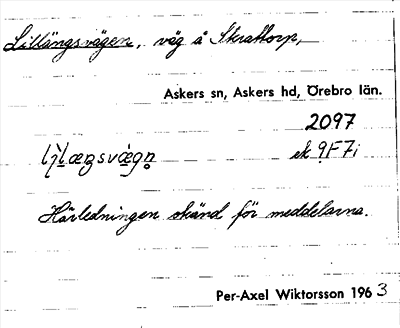 Lillängsvägen, väg å Skrattorp,
Askers sn, Askers hd, Örebro län.
2097
ek 9F7i
Härledningen okänd för meddelarna.
Per-Axel Wiktorsson 1963